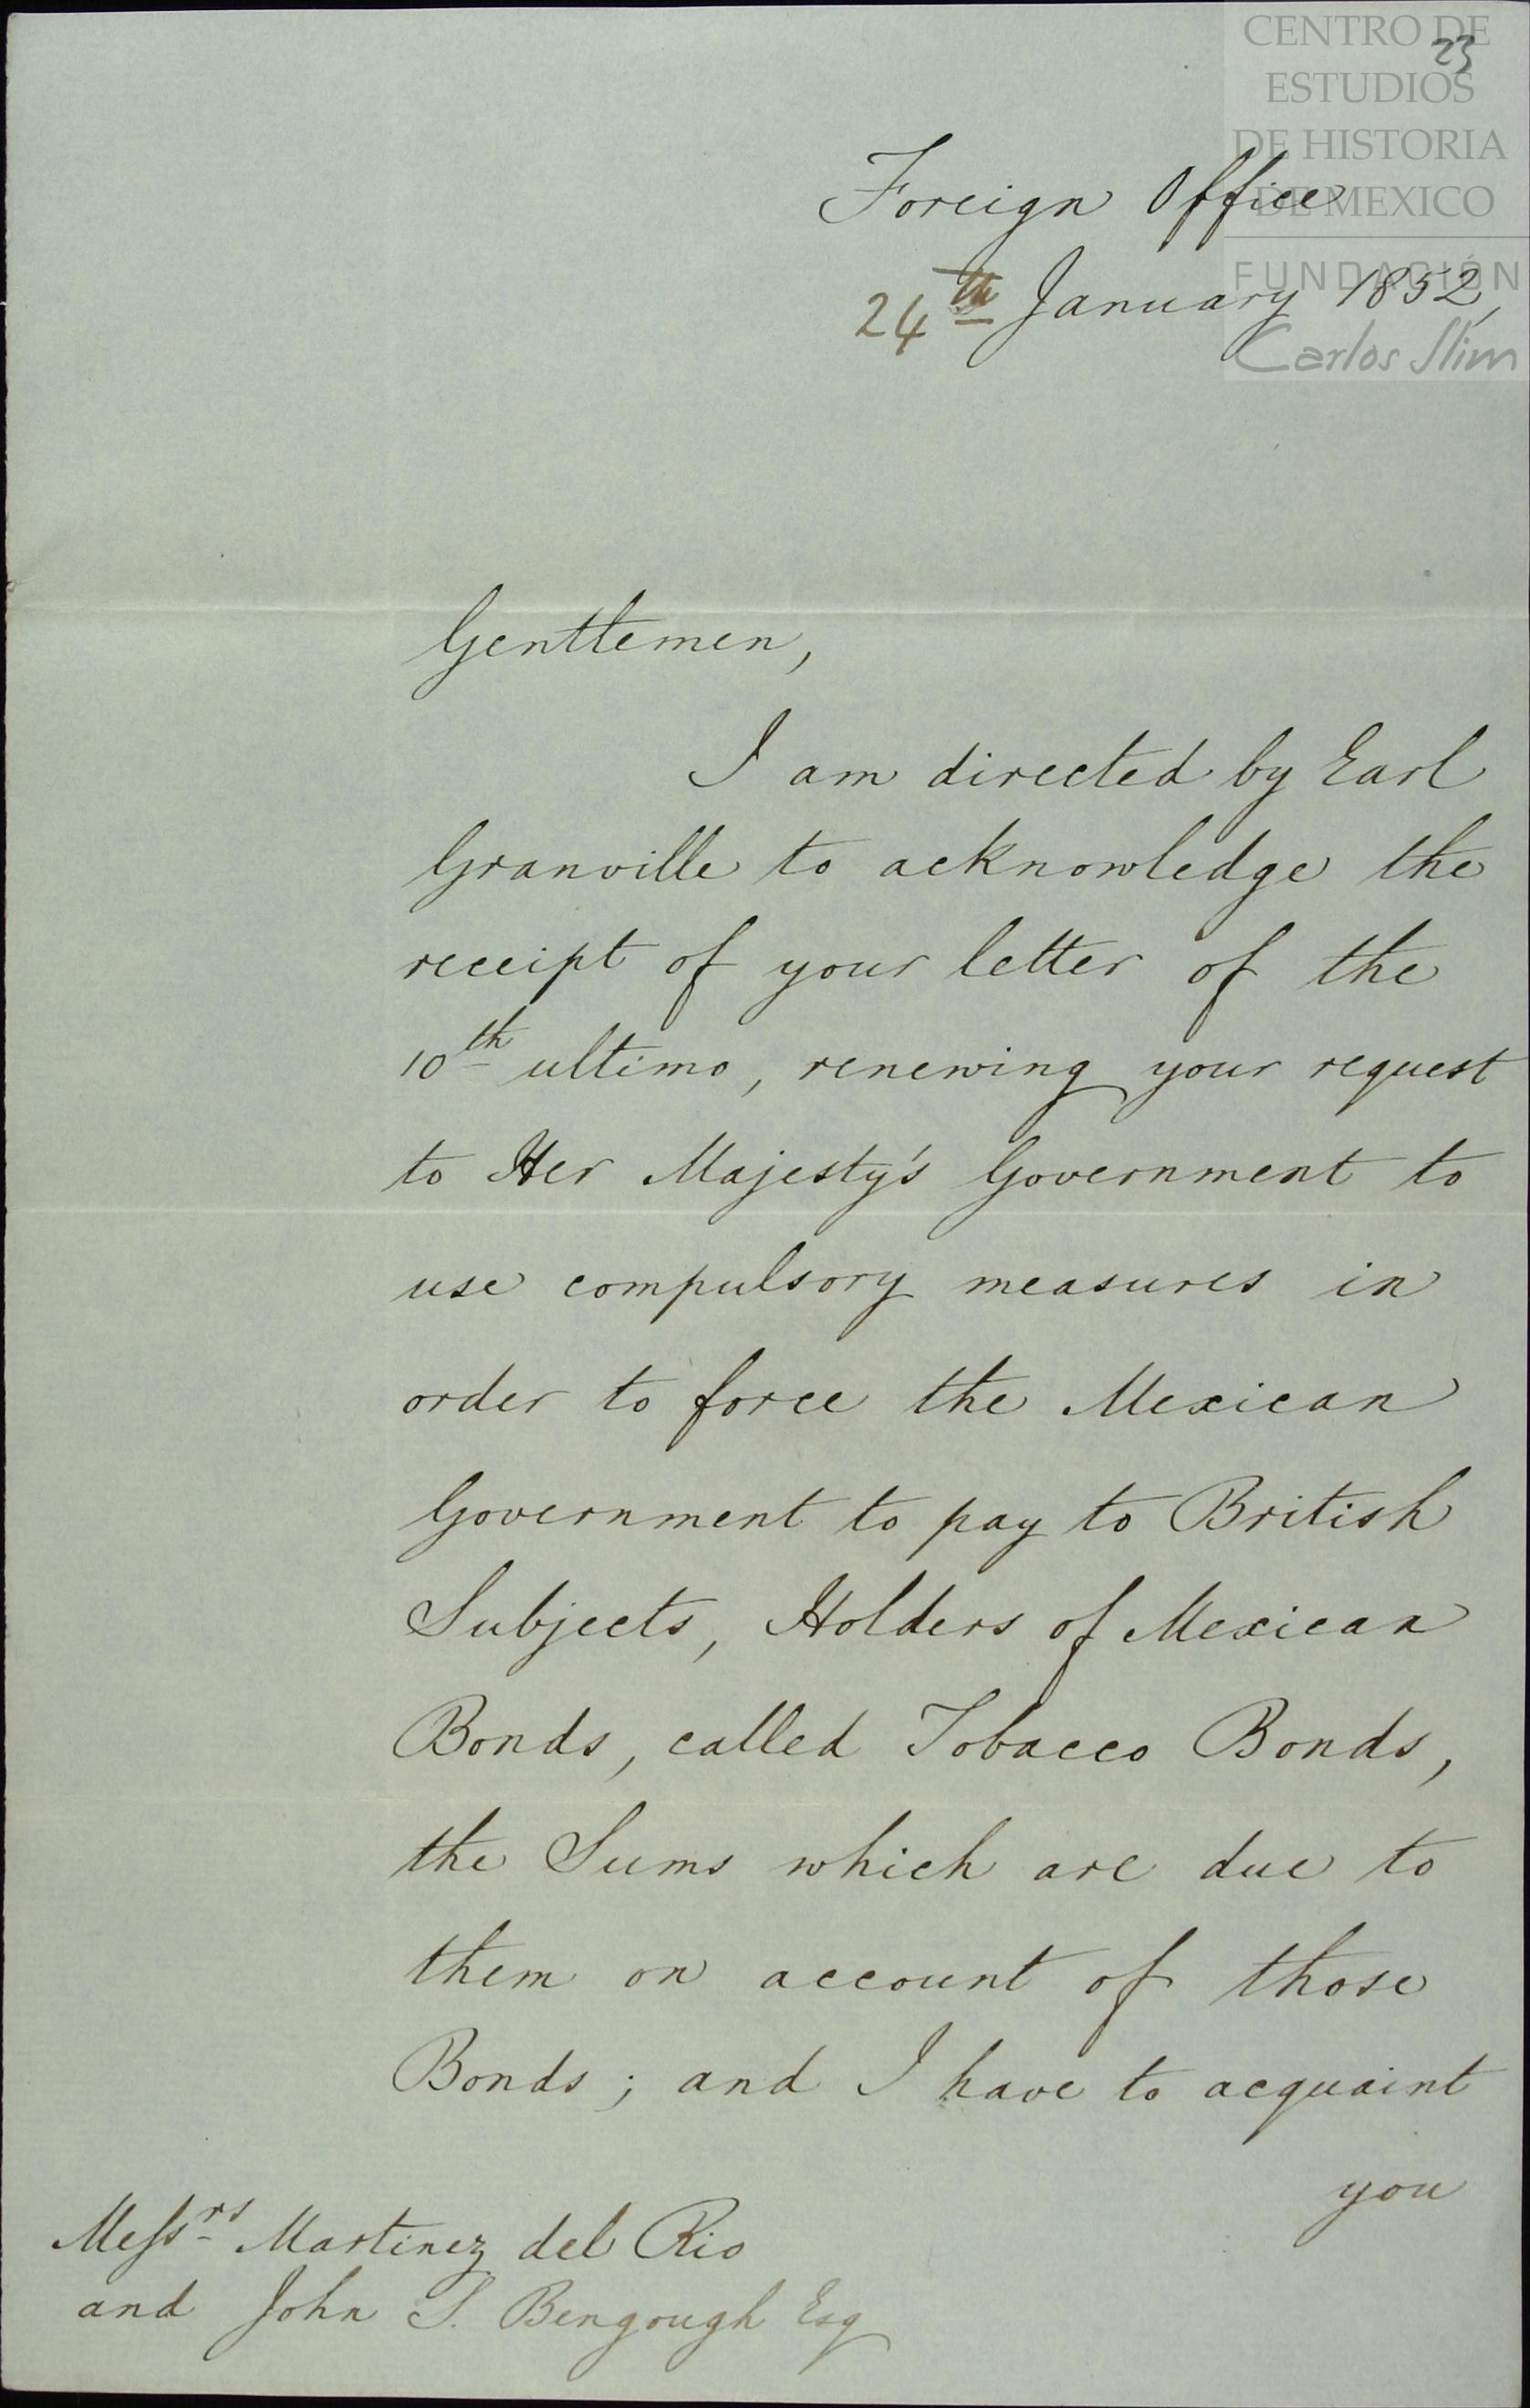 CENTRO DE
ESTUDIOS
DE HISTORIA
DE MEXICO
FUNDACIÓN
Carlos Slim
23
Foreign Office
24th January 1852,
Gentlemen,
I am directed by Earl
Granville to acknowledge the
receipt of your letter of the
10th ultimo, renewing your request
to Her Majesty's Government to
use compulsory measures in
order to force the Mexican
Government to pay to British
Subjects, Holders of Mexican
Bonds, called Tobacco Bonds,
the Sums which are due to
them on account of those
Bonds; and I have to acquaint
you
Messrs Martinez del Rio
and John S. Bengough Esq